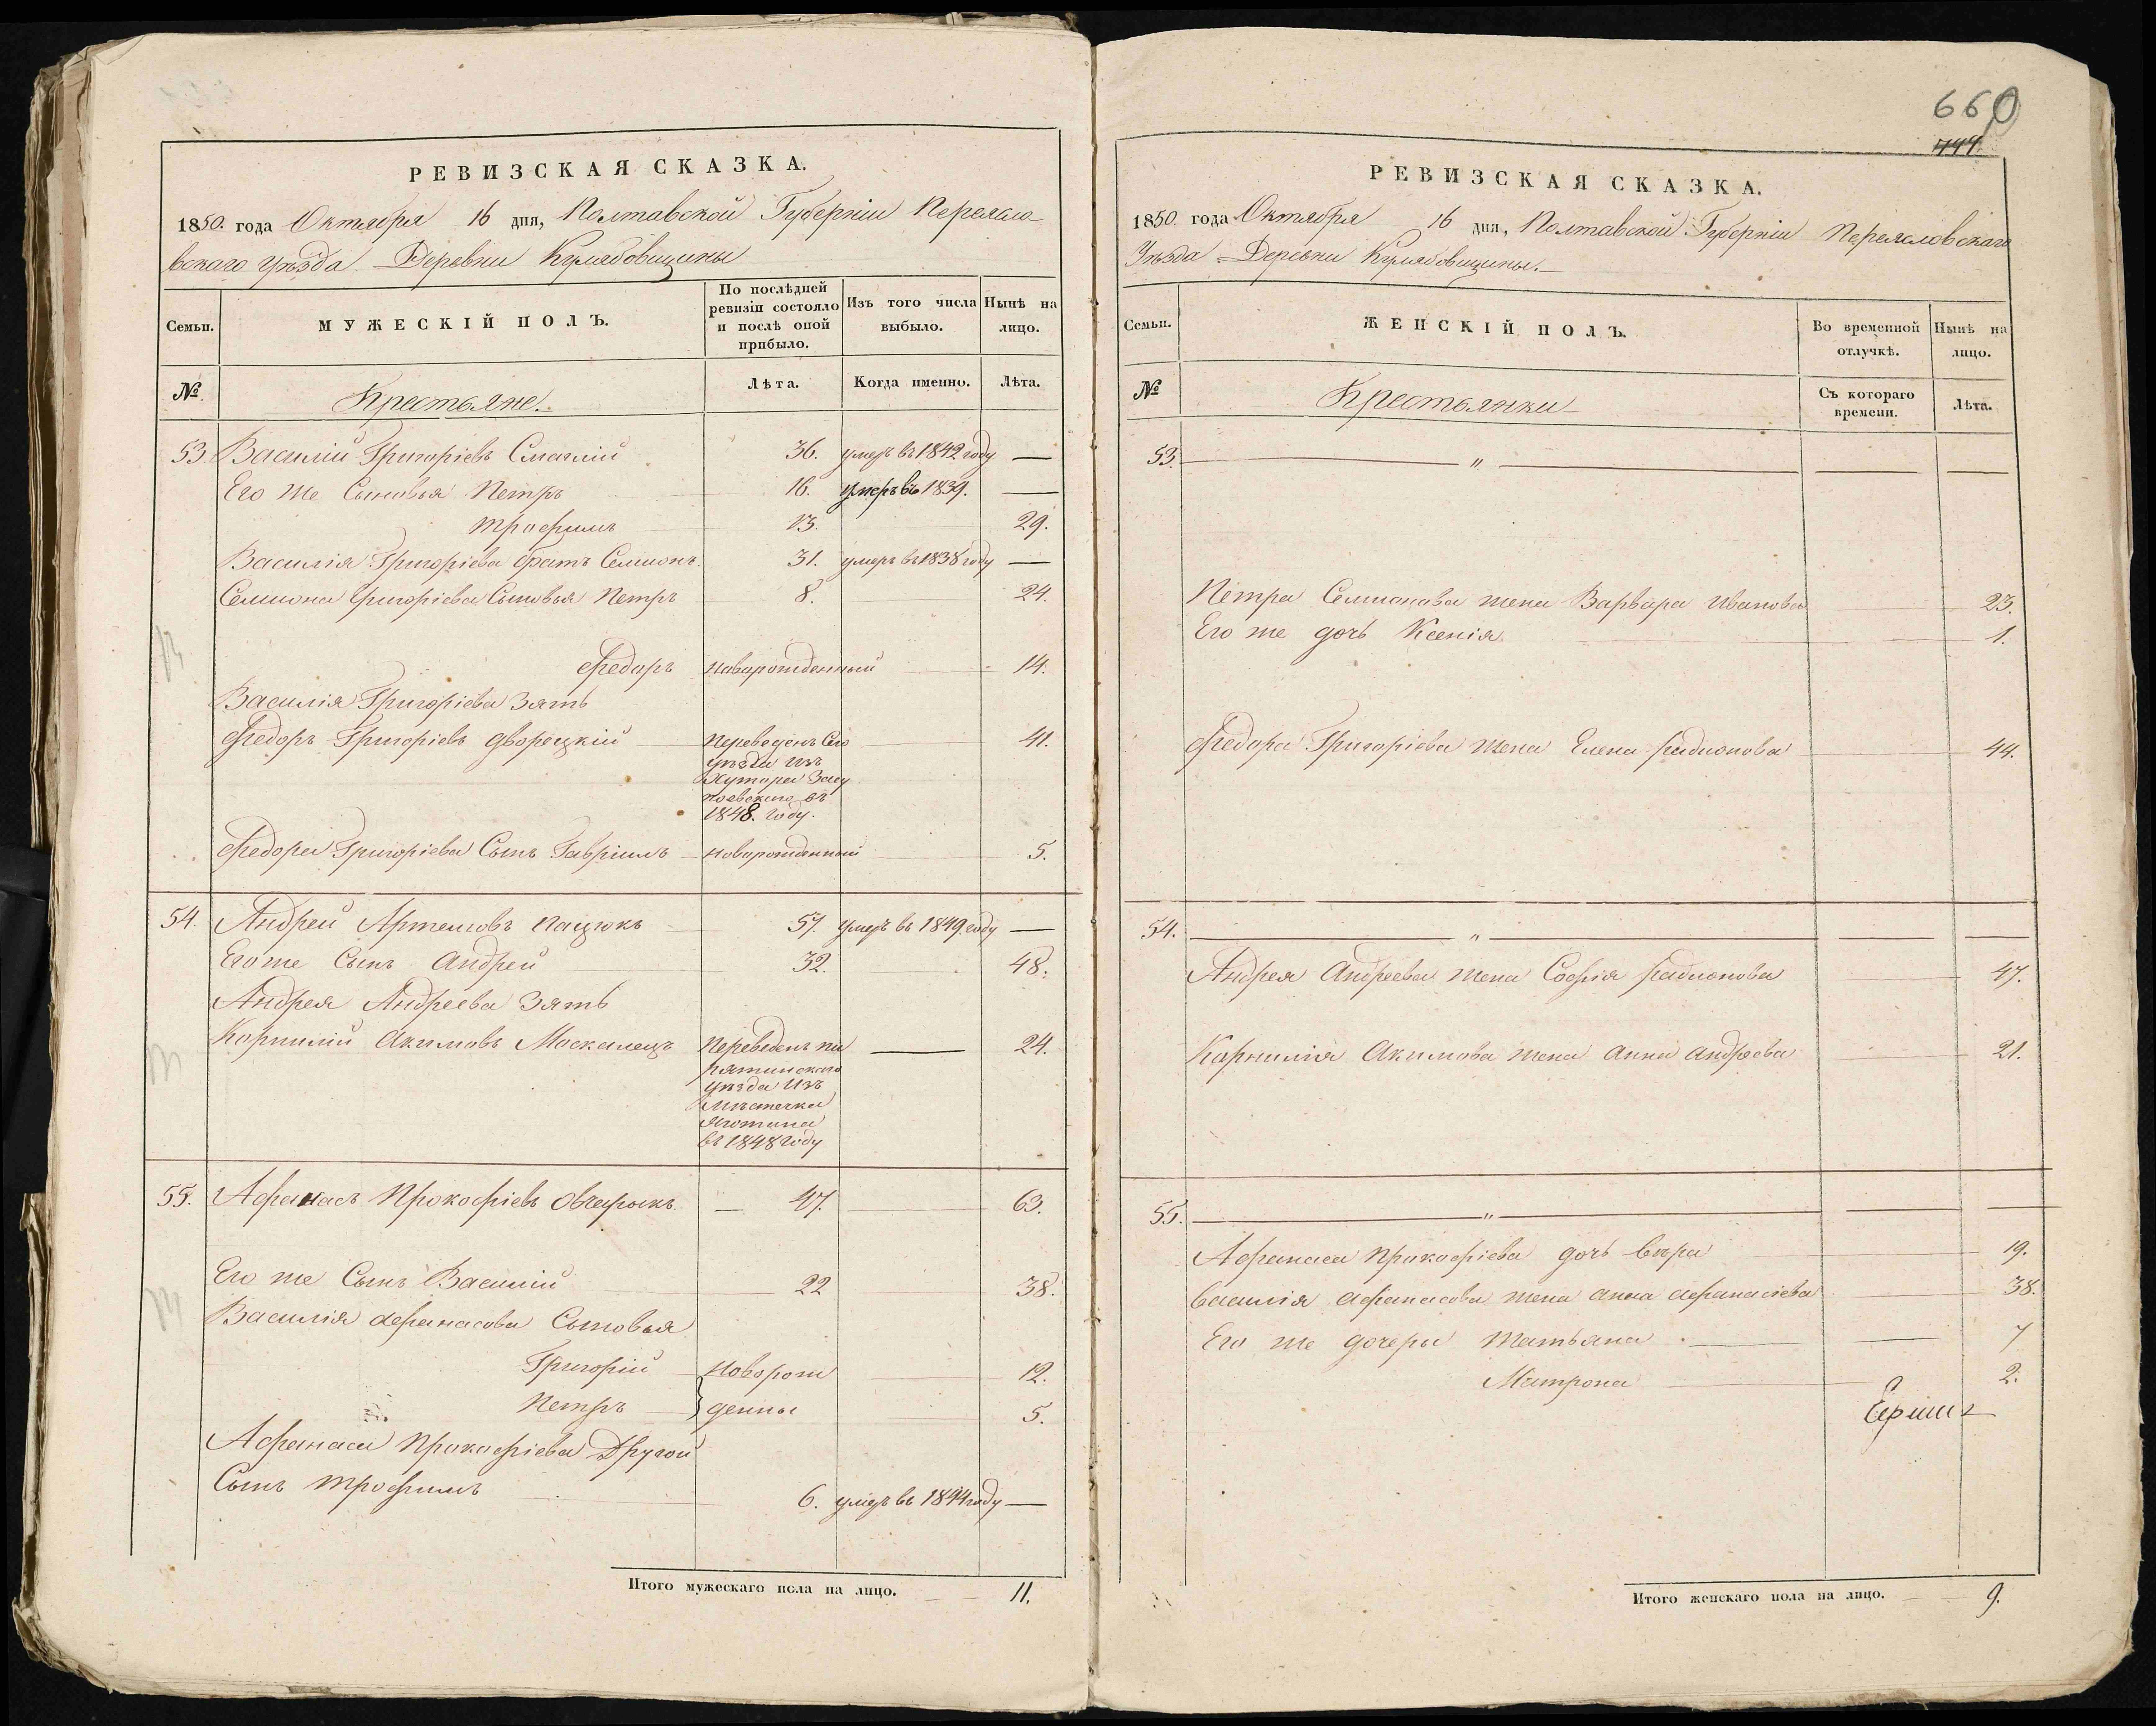 РЕВИЗСКАЯ СКАЗКА.
1850. года Октября 16 дня, Полтавской Губерніи Переясло
вскаго Уѣзда Деревни Кулябовщины
Семьи.
МУЖЕСКІЙ ПОЛЪ.
По послѣдней ревизіи состояло и послѣ оной прибыло.
Изъ того числа выбыло.
Нынѣ на лицо.
№
Крестьяне.
Лѣта.
Когда именно.
Лѣта.
53. Василій Григоріевъ 36. умеръ въ 1842 году —
Его же Сыновья Петръ 16. умеръ въ 1839. —
Трофимъ 13. 29.
Василія Григоріева братъ Семионъ. 31. умеръ въ 1838 году —
Семиона Григоріева Сыновья Петръ 8. 24.
Федоръ новорожденный 14.
Василія Григоріева Зять
Федоръ Григоріевъ Дворецкій Переведенъ Сего 41.
уѣзда изъ
Хутора
въ
1848. году.
Федора Григоріева Сынъ Гавріилъ новорожденный 5.
54. Андрей Артемовъ Пацюкъ 57. умеръ въ 1849. году —
Его же Сынъ Андрей 32. 48.
Андрея Андреева Зять
Корнилій Акимовъ Москалецъ Переведенъ пи 24.
рятинскаго
уѣзда изъ
мѣстечка
Яготина
въ 1848 году
55. Афанасъ Прокофіевъ Овчарыкъ. 47. 63.
Его же Сынъ Василій 22 38.
Василія Афанасова Сыновья
Григорій новорож 12.
Петръ } денны 5.
Афанаса Прокофіева Другой
Сынъ Трофимъ 6. умеръ въ 1844 году —
Итого мужескаго пола на лицо. 11.
660
444
РЕВИЗСКАЯ СКАЗКА.
1850. года Октября 16 дня, Полтавской Губерніи Переясловскаго
Уѣзда Деревни Кулябовщины.
Семьи.
ЖЕНСКІЙ ПОЛЪ.
Во временной отлучкѣ.
Нынѣ на лицо.
№
Крестьянки
Съ котораго времени.
Лѣта.
53. — „ —
Петра Семионова жена Варвара Иванова 23.
Его же дочь Ксенія. 1.
Федора Григоріева жена Елена Радионова 44.
54. — „ —
Андрея Андреева жена Софія Радионова 47.
Корнилія Акимова жена Анна Андреева 21.
55. — „ —
Афанаса Прокофіева дочь Вѣра 19.
Василія Афанасова жена Анна Афанасіева 38.
Его же дочеры Татьяна 7
Матрона 2.
Итого женскаго пола на лицо. 9.